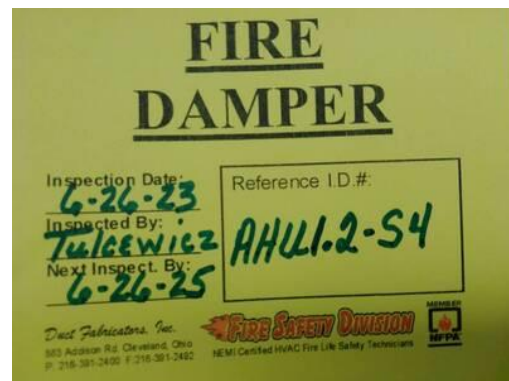 FIRE
DAMPER
Inspection Date:
6-26-23
Inspected By:
Tulcewicz
Next Inspect. By:
6-26-25
Reference I.D.#:
AHU1.2-S4
Duct Fabricators, Inc.
883 Addison Rd. Cleveland, Ohio
P: 216-391-2400 F:216-391-2492
FIRE SAFETY DIVISION
NEMI Certified HVAC Fire Life Safety Technicians
MEMBER
NFPA